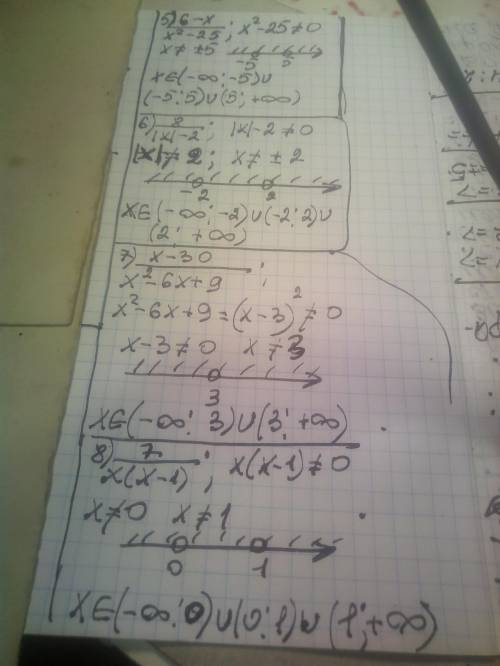 5) 6-x / x²-25 ; x²-25≠0
x≠ ±5
-5 5
x∈(-∞;-5)∪
(-5;5)∪(5;+∞)
6) 8 / |x|-2 ; |x|-2≠0
|x|≠2; x≠±2
-2 2
x∈(-∞;-2)∪(-2;2)∪
(2;+∞)
7) x-30 / x²-6x+9 ;
x²-6x+9=(x-3)²≠0
x-3≠0 x≠3
3
x∈(-∞;3)∪(3;+∞)
8) 7 / x(x-1) ; x(x-1)≠0
x≠0 x≠1
0 1
x∈(-∞;0)∪(0;1)∪(1;+∞)